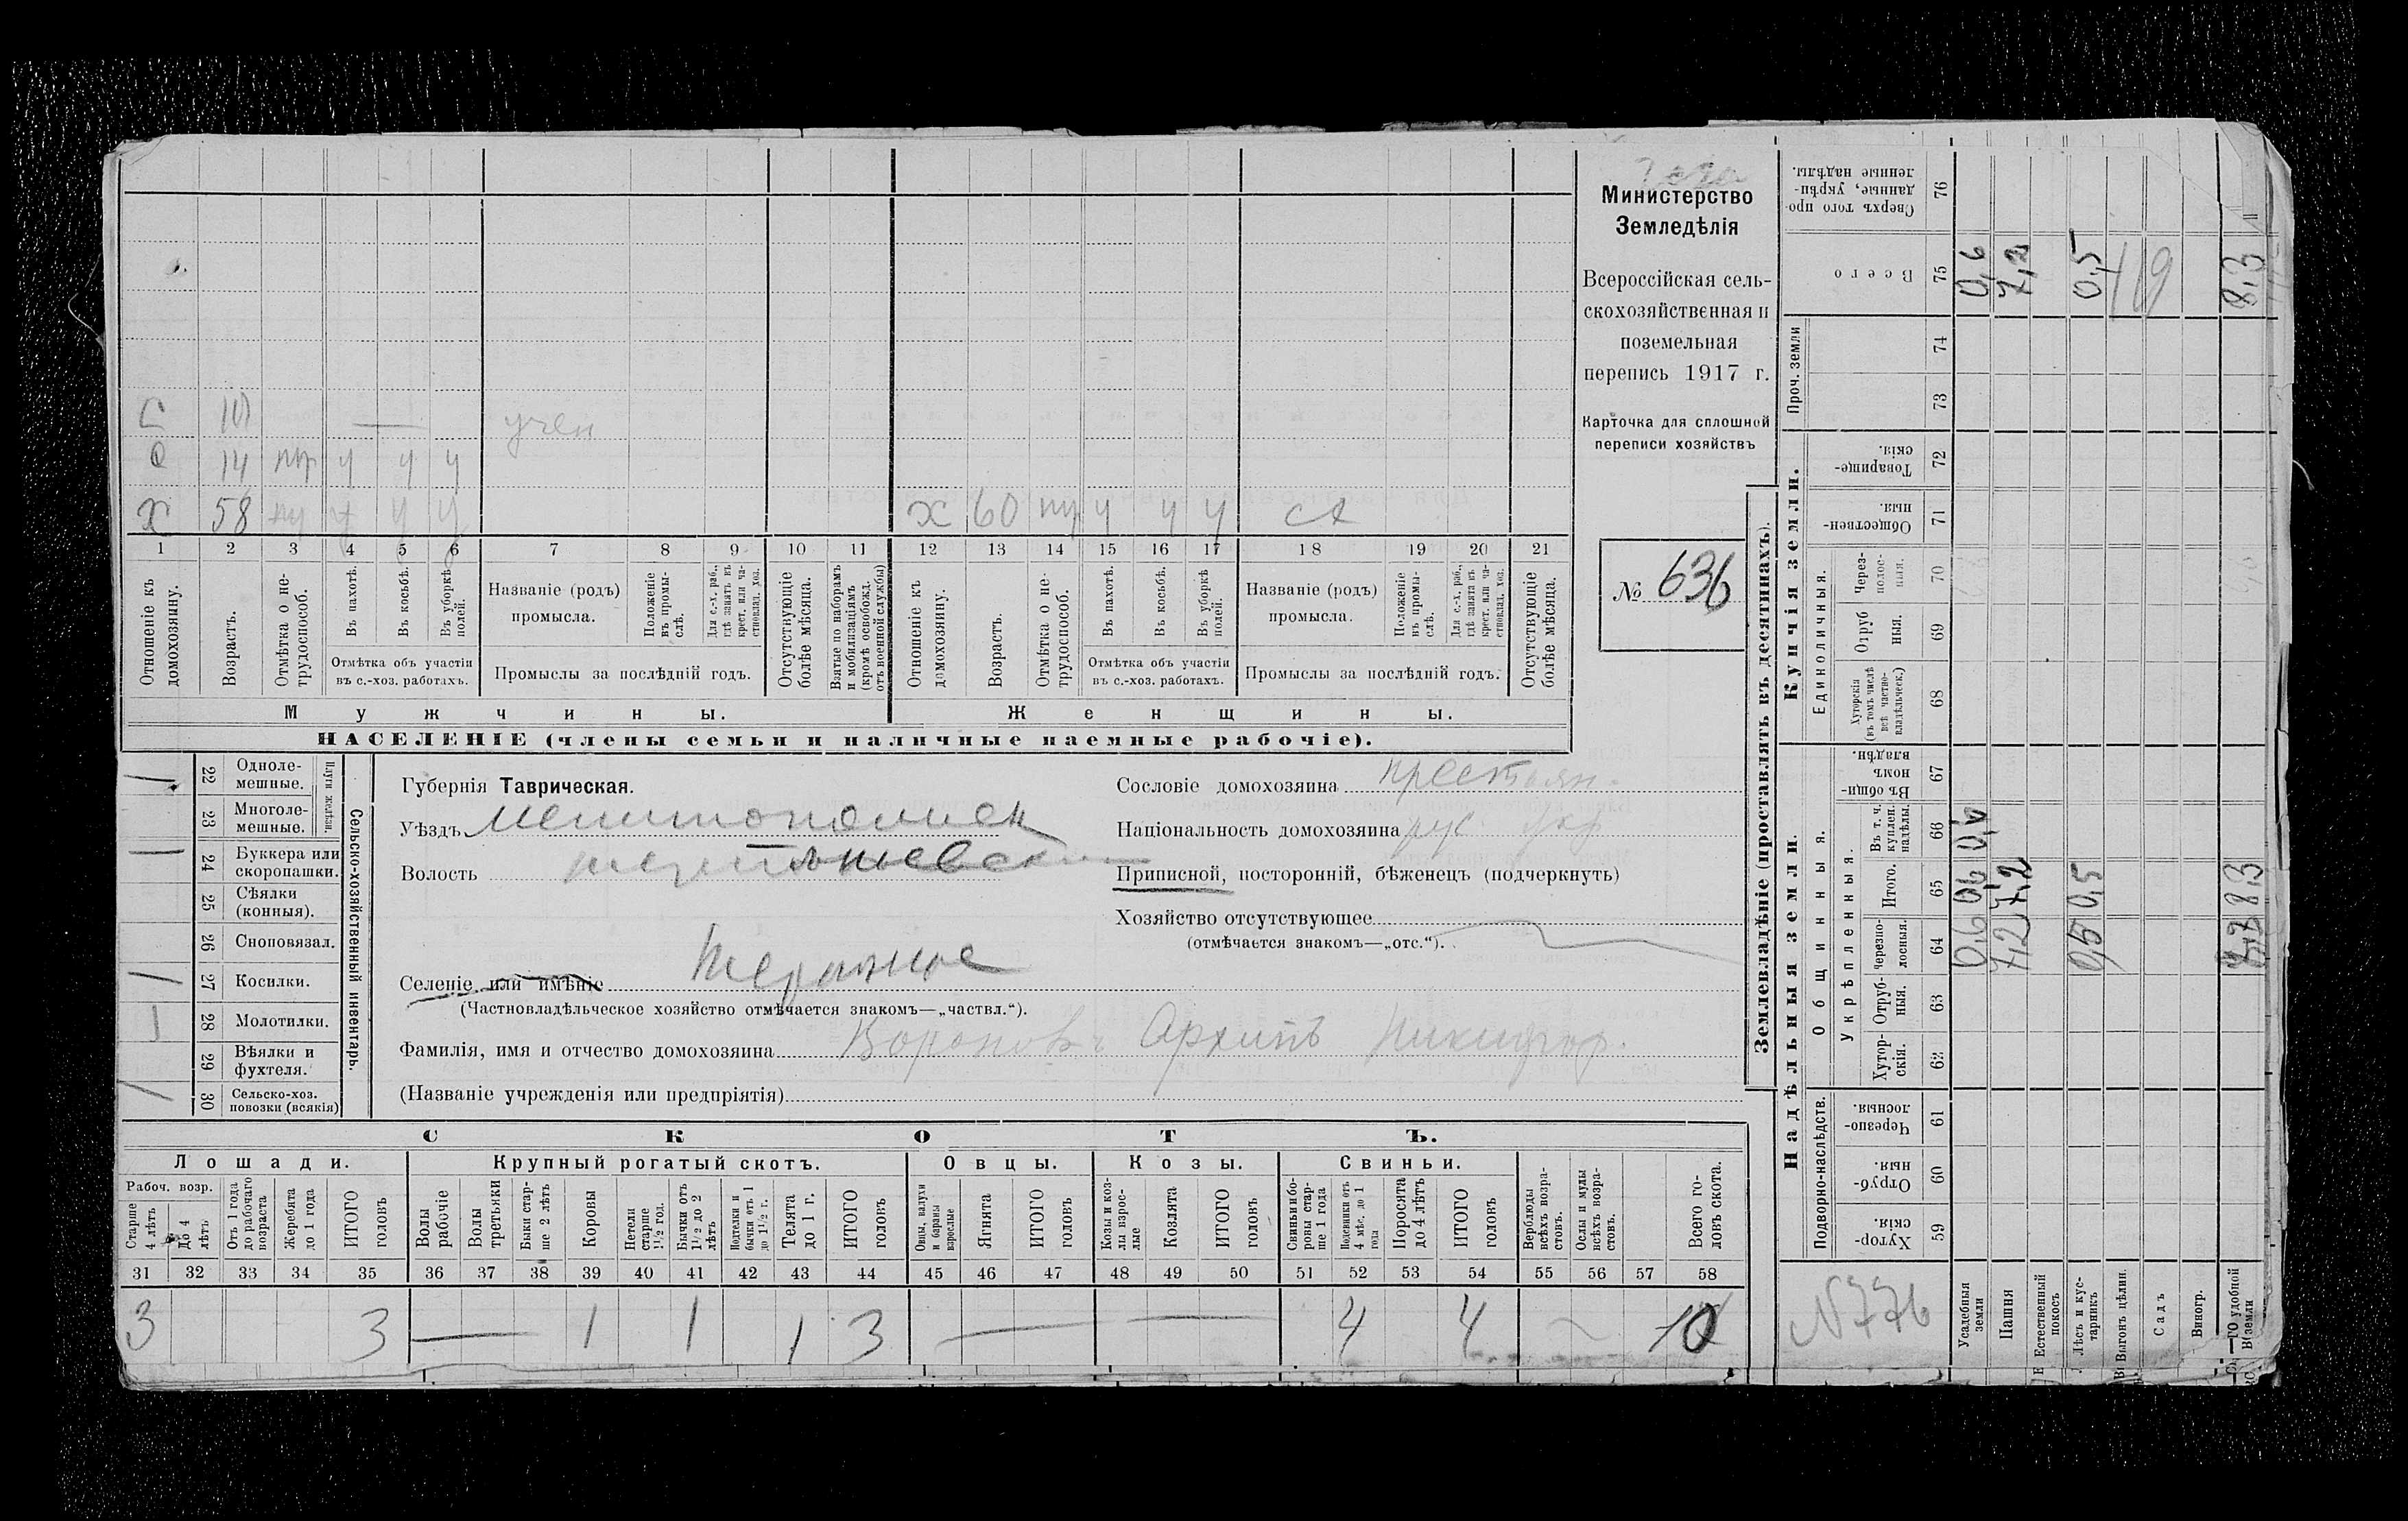 Министерство
Земледѣлія
Всероссійская сель-
скохозяйственная и
поземельная
перепись 1917 г.
Карточка для сплошной
переписи хозяйствъ
№ 636
С 10 — учен
С 14 пр у у у
Х 58 пр у у у
Х 60 пр у у у
1 2 3 4 5 6 7 8 9 10 11 12 13 14 15 16 17 18 19 20 21
Отношеніе къ домохозяину.
Возрастъ.
Отмѣтка о не-трудоспособ.
Въ пахотѣ.
Въ косьбѣ.
Въ уборкѣ полей.
Отмѣтка объ участіи
въ с.-хоз. работахъ.
Названіе (родъ)
промысла.
Положеніе въ промы-слѣ.
Для с.-х. раб., гдѣ занятъ въ крест. или ча-стновлад. хоз.
Промыслы за послѣдній годъ.
Отсутствующіе болѣе мѣсяца.
Взятые по наборамъ и мобилизаціямъ (кромѣ освобожд. отъ военной службы)
Отношеніе къ домохозяину.
Возрастъ.
Отмѣтка о не-трудоспособ.
Въ пахотѣ.
Въ косьбѣ.
Въ уборкѣ полей.
Отмѣтка объ участіи
въ с.-хоз. работахъ.
Названіе (родъ)
промысла.
Положеніе въ промы-слѣ.
Для с.-х. раб., гдѣ занята въ крест. или ча-стновлад. хоз.
Промыслы за послѣдній годъ.
Отсутствующіе болѣе мѣсяца.
Мужчины. Женщины.
НАСЕЛЕНІЕ (члены семьи и наличные наемные рабочіе).
Сельско-хозяйственный инвентарь.
Плуги желѣзн.
22 Одноле-мешные. 1
23 Многоле-мешные.
24 Буккера или скоропашки. 1
25 Сѣялки (конныя).
26 Сноповязал.
27 Косилки. 1
28 Молотилки. 1
29 Вѣялки и фухтеля.
30 Сельско-хоз. повозки (всякія) 1
Губернія Таврическая.
Уѣздъ
Волость
Селеніе или имѣніе
(Частновладѣльческое хозяйство отмѣчается знакомъ—„частвл.“).
Фамилія, имя и отчество домохозяина Вороновъ Архипъ Никифор.
(Названіе учрежденія или предпріятія)
Сословіе домохозяина крестьян.
Національность домохозяина рус укр
Приписной, посторонній, бѣженецъ (подчеркнуть)
Хозяйство отсутствующее
(отмѣчается знакомъ—„отс.“).
СКОТЪ.
Лошади. Крупный рогатый скотъ. Овцы. Козы. Свиньи.
Рабоч. возр.
Старше 4 лѣтъ
До 4 лѣтъ
Отъ 1 года до рабочаго возраста
Жеребята до 1 года
ИТОГО головъ
Волы рабочіе
Волы третьяки
Быки стар-ше 2 лѣтъ
Коровы
Нетели старше 1½ год.
Бычки отъ 1½ до 2 лѣтъ
Подтелки и бычки отъ 1 до 1½ г.
Телята до 1 г.
ИТОГО головъ
Овцы, валухи и бараны взрослые
Ягнята
ИТОГО головъ
Козы и коз-лы взрос-лые
Козлята
ИТОГО головъ
Свиньи и бо-ровы стар-ше 1 года
Подсвинки отъ 4 мѣс. до 1 года
Поросята до 4 лѣтъ
ИТОГО головъ
Верблюды всѣхъ возра-стовъ.
Ослы и мулы всѣхъ возра-стовъ.
Всего го-ловъ скота.
31 32 33 34 35 36 37 38 39 40 41 42 43 44 45 46 47 48 49 50 51 52 53 54 55 56 57 58
3 3 — 1 1 1 3 — — 4 4 10
Землевладѣніе (проставлять въ десятинахъ).
Надѣльныя земли. Купчія земли.
Сверхъ того про-данные, укрѣп-ленные надѣлы. 76
Всего 75
Проч. земли 74 73
Товарище-скія. 72
Обществен-ныя. 71
Единоличныя.
Через-полос-ныя. 70
Отруб ныя. 69
Хуторскія (въ томъ числѣ всѣ частно-владѣльческ.) 68
Общинныя.
Въ общи-номъ владѣн. 67
Укрѣпленныя.
Въ т. ч. куплен. надѣлы. 66
Итого. 65
Черезпо-лосныя. 64
Отруб-ныя. 63
Хутор-скія. 62
Подворно-наслѣдств.
Черезпо-лосныя. 61
Отруб-ныя. 60
Хутор-скія. 59
№ 776
Усадебныя земли 0,6 0,6 0,6
Пашня 7,2 7,2 7,2
Естественный покосъ
Лѣсъ и кус-тарникъ 0,5 0,5 0,5
Выгонъ цѣлин.
Садъ
Виногр.
удобной земли 8,3 8,3